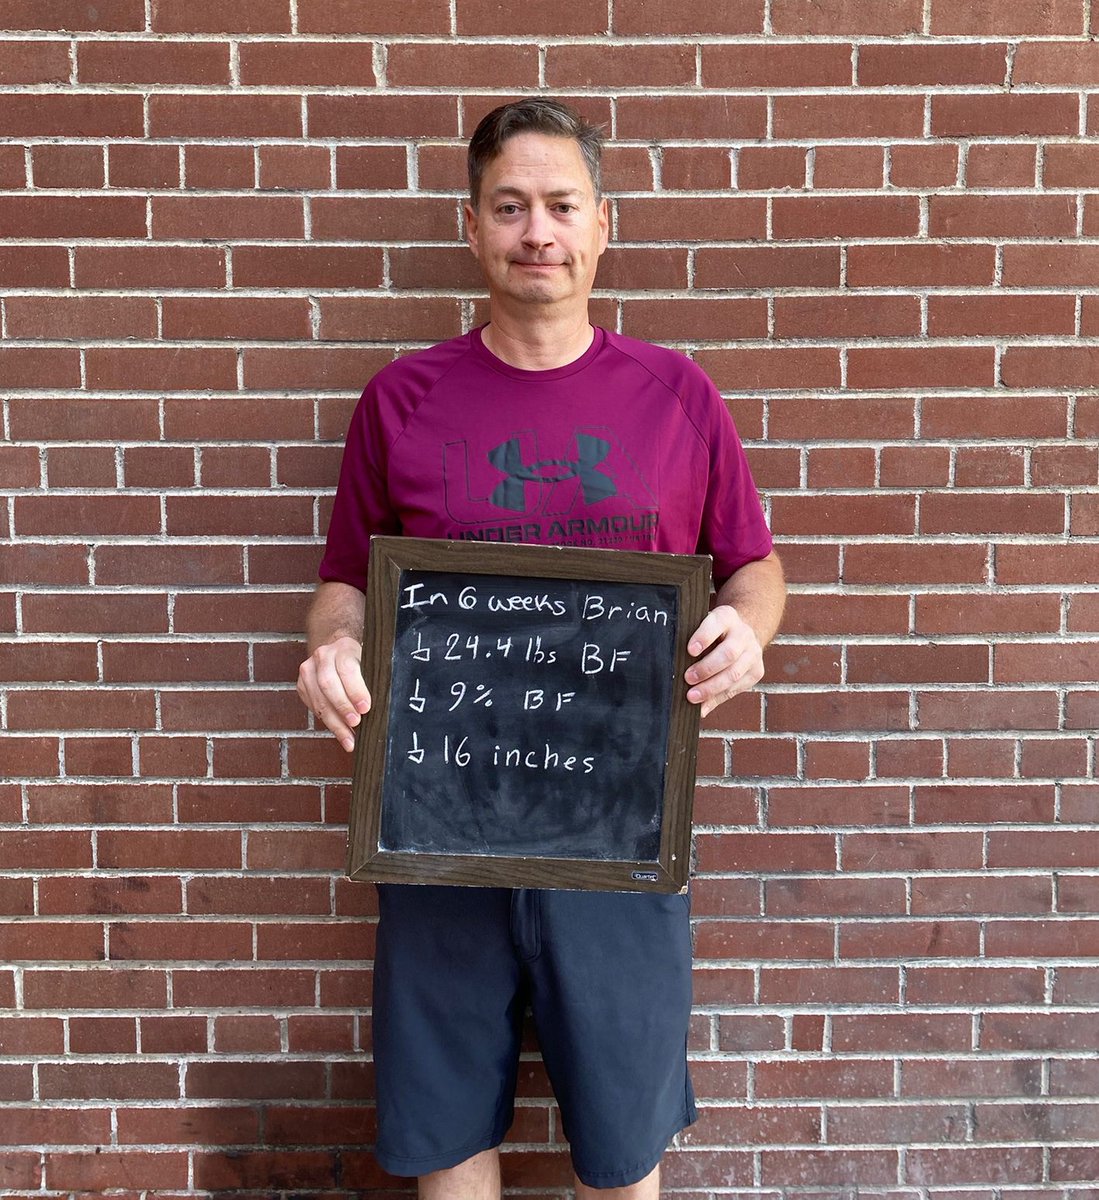 UA
UNDER ARMOUR
In 6 weeks Brian
↓ 24.4 lbs BF
↓ 9% BF
↓ 16 inches
Quartet